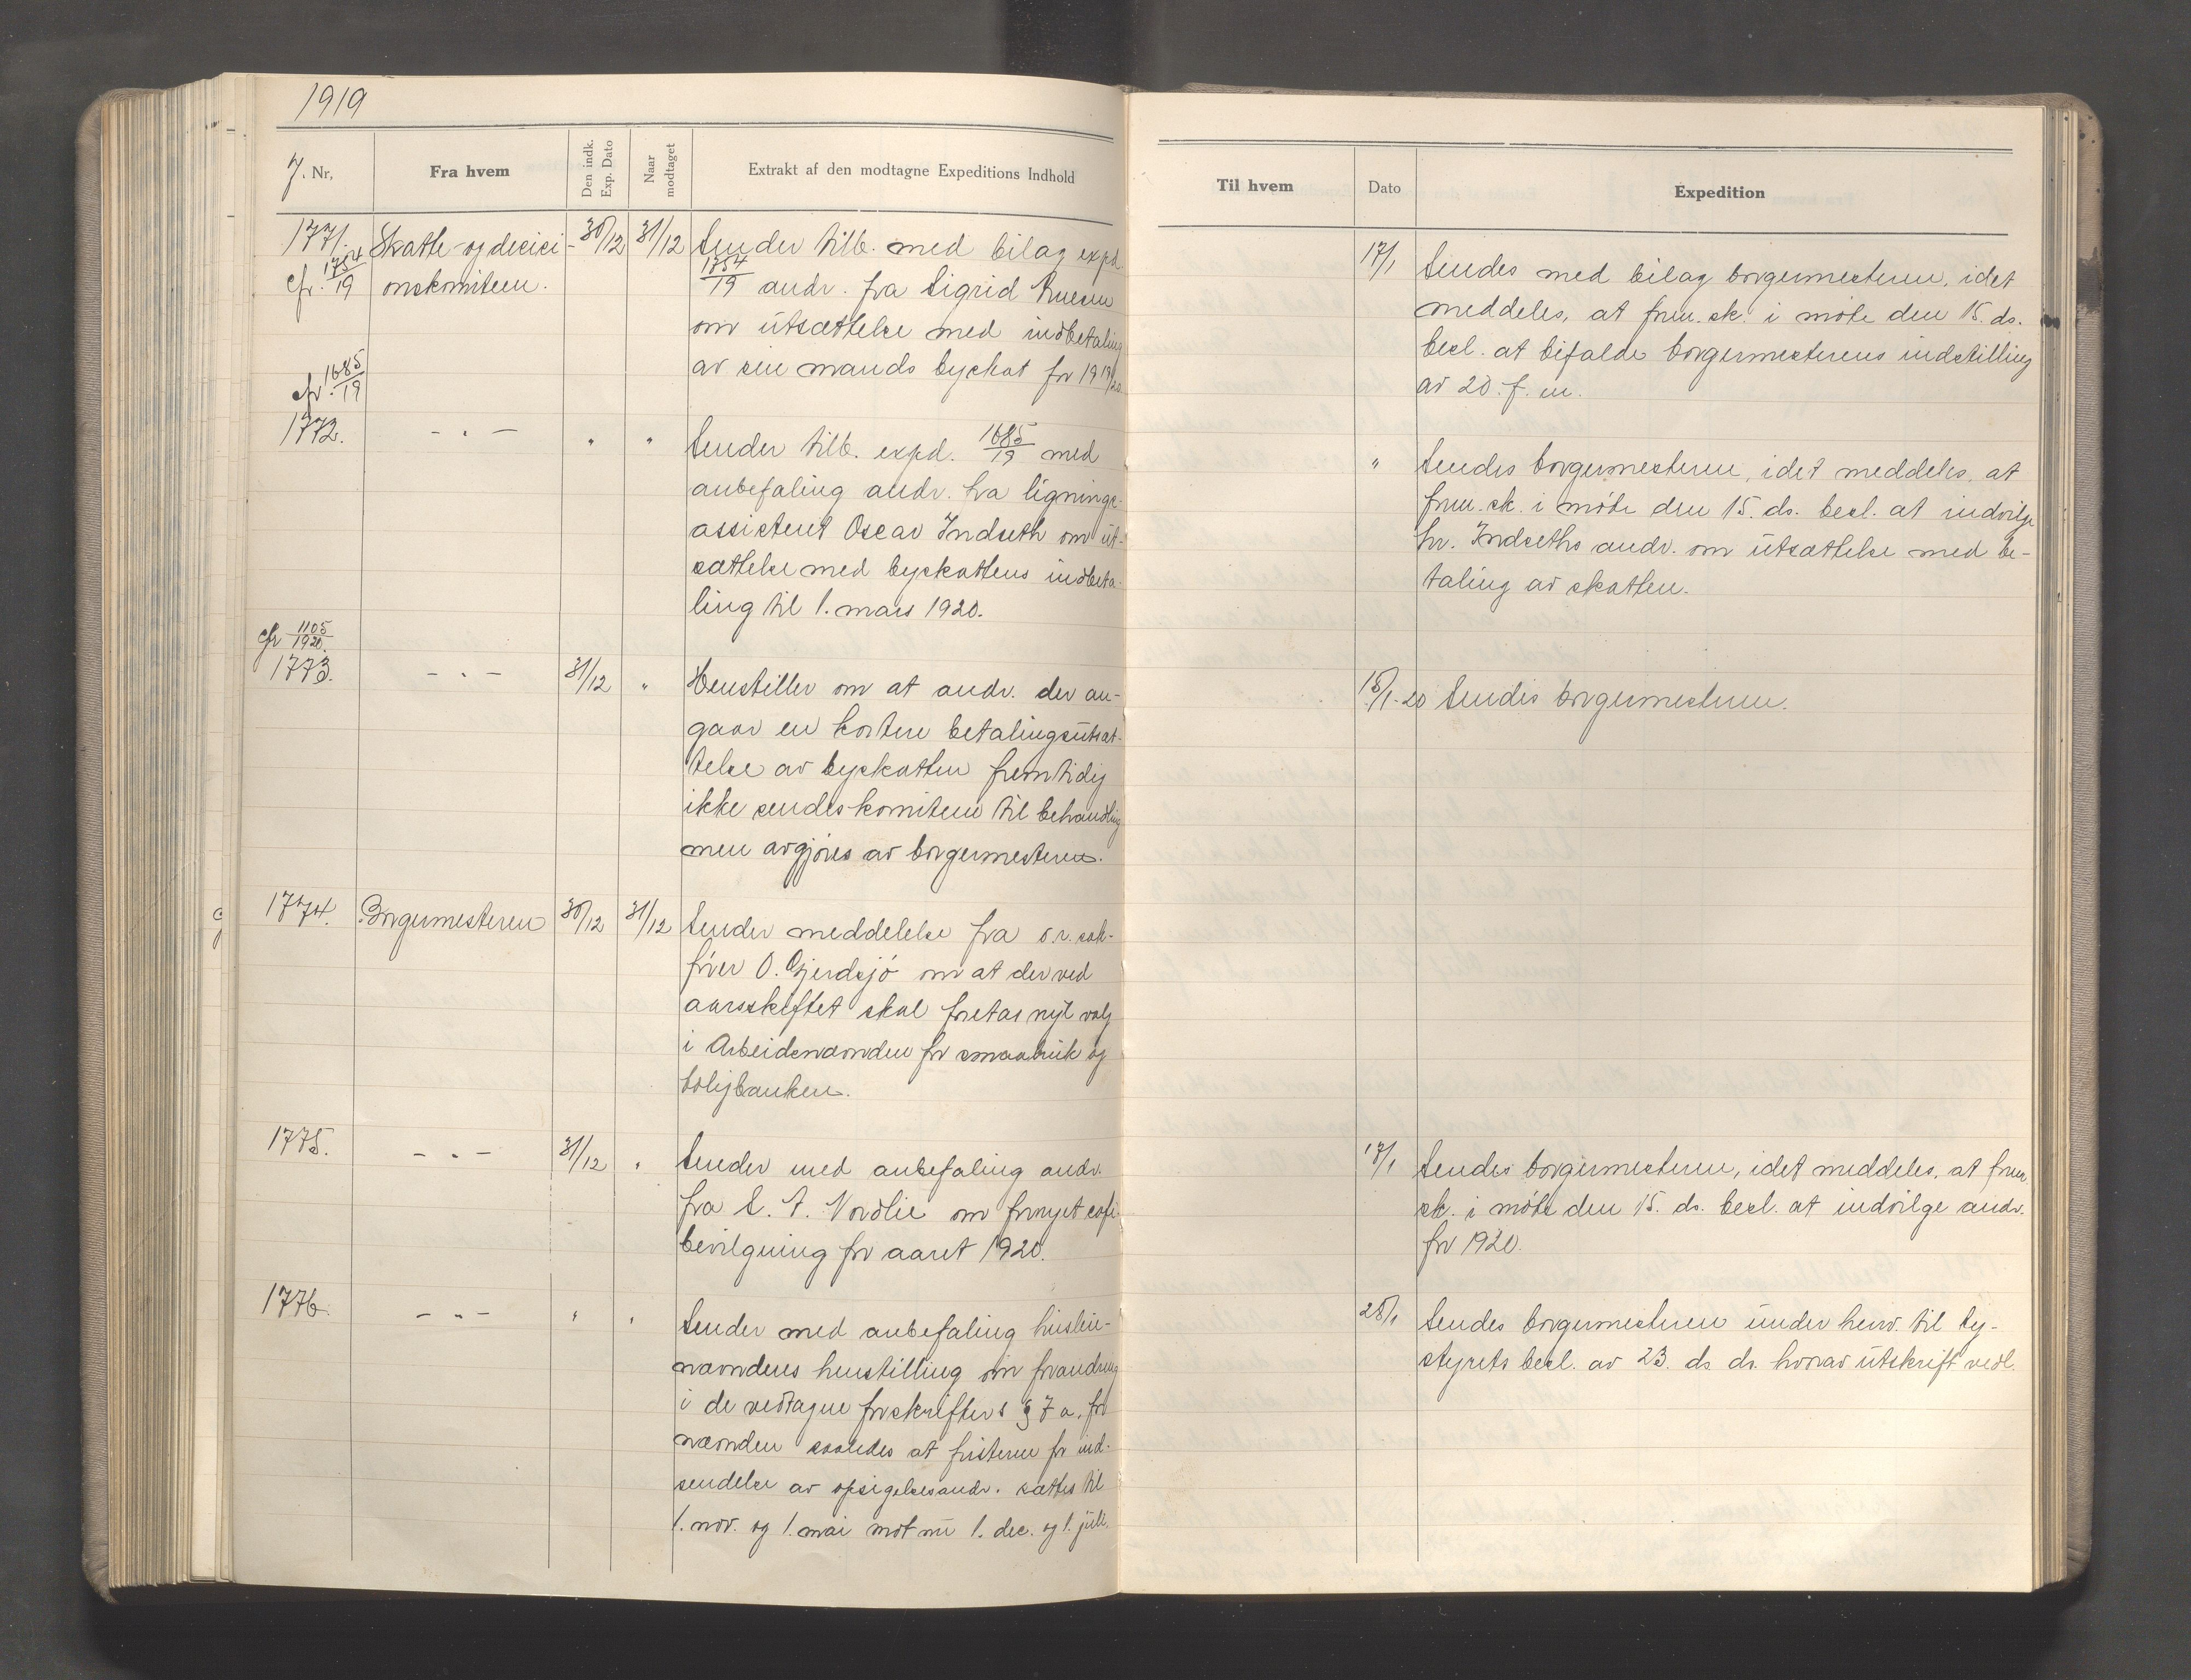 1919
J. Nr,
Fra hvem
Den indk. Exp. Dato
Naar modtaget
Extrakt af den modtagne Expeditions Indhold
Til hvem
Dato
Expedition
1771.
cfr. 1754/19
Skatte- og decisi-
onskomiteen.
30/12 31/12
Sender tilb. med bilag expd.
1754/19 andr. fra Sigrid
om utsættelse med indbetaling
av sin mands byskat for 1919/20
17/1
Sendes med bilag borgermesteren, idet
meddeles, at form.sk. i møte den 15. ds.
besl. at bifalde borgermesterens indstilling
av 20. f. m.
cfr. 1685/19
1772.
- " -
" "
Sender tilb. expd. 1685/19 med
anbefaling andr. fra lignings-
assistent Oscar Indseth om ut-
sættelse med byskattens indbeta-
ling til 1. mars 1920.
"
Sendes borgermesteren, idet meddeles, at
form.sk. i møte den 15. ds. besl. at indvilge
hr. Indseths andr. om utsættelse med be-
taling av skatten.
cfr 1105/1920.
1773.
- " -
31/12 "
Henstiller om at andr. der an-
gaar en kortere betalingsutsæt-
telse av byskatten fremtidig
ikke sendes komiteen til behandling
men avgjøres av borgermesteren.
15/1-20
Sendes borgermesteren.
1774.
Borgermesteren
30/12 31/12
Sender meddelelse fra o.r.sak-
fører O. Gjerdsjø om at der ved
aarsskiftet skal foretas nyt valg
i Arbeidsnævnden for smaabruk og
boligbanken.
1775.
- " -
31/12 "
Sender med anbefaling andr.
fra S. A. Nordlie om fornyet cafe
bevilgning for aaret 1920.
17/1
Sendes borgermesteren, idet meddeles, at form.
sk. i møte den 15. ds. besl. at indvilge andr.
for 1920.
1776.
- " -
" "
Sender med anbefaling husleie-
nævndens henstilling om forandring
i de vedtagne forskrifters § 7 a. for
nævnden saaledes at fristerne for ind-
sendelse av opsigelsesandr. sættes til
1. nov. og 1. mai mot nu 1. dec. og 1. juli.
28/1
Sendes borgermesteren under henv. til by-
styrets besl. av 23. ds ds. hvorav utskrift vedl.